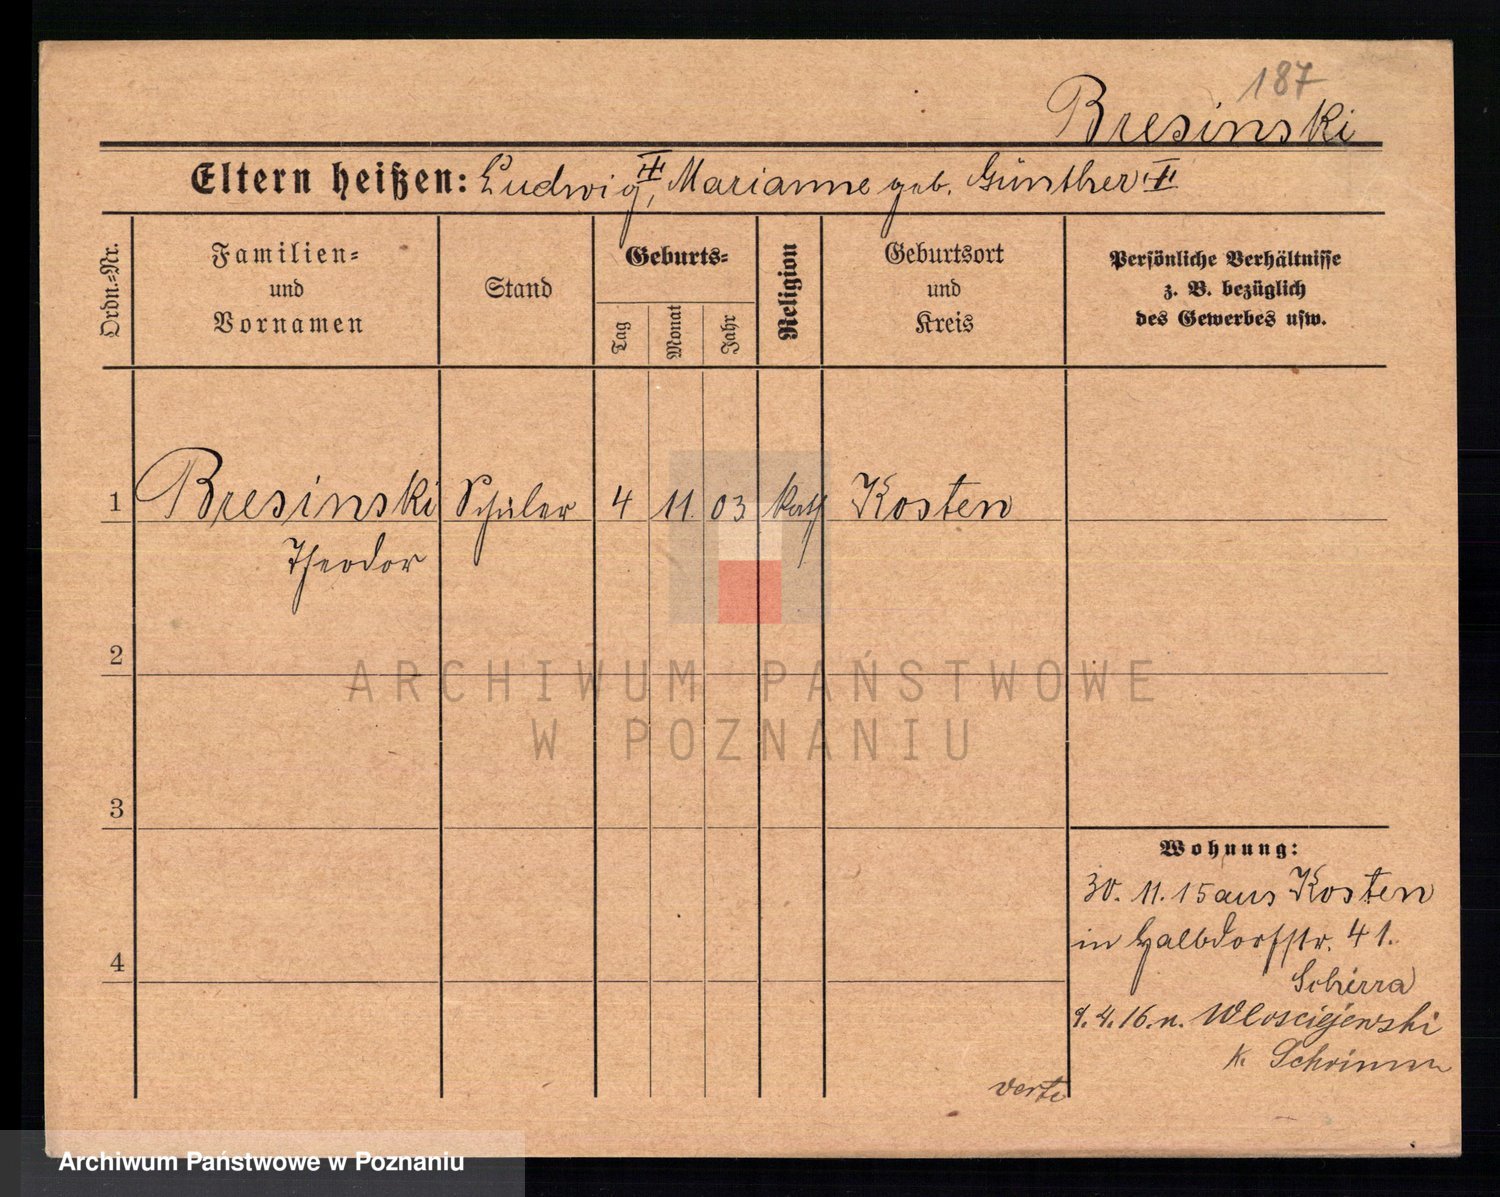 187
Bresinski
Eltern heißen: Ludwig ☦, Marianne geb. Günther ☦
Ordn.=Nr.
Familien=
und
Vornamen
Stand
Geburts=
Tag
Monat
Jahr
Religion
Geburtsort
und
Kreis
Persönliche Verhältnisse
z. B. bezüglich
des Gewerbes usw.
1 Bresinski Schüler 4 11. 03 kath Kosten
Theodor
2
3
4
Wohnung:
30. 11. 15 aus Kosten
in Halbdorfstr. 41.
Schirra
4. 16. n. Wlosciejewski
K. Schrimm
verte
ARCHIWUM PAŃSTWOWE
W POZNANIU
Archiwum Państwowe w Poznaniu